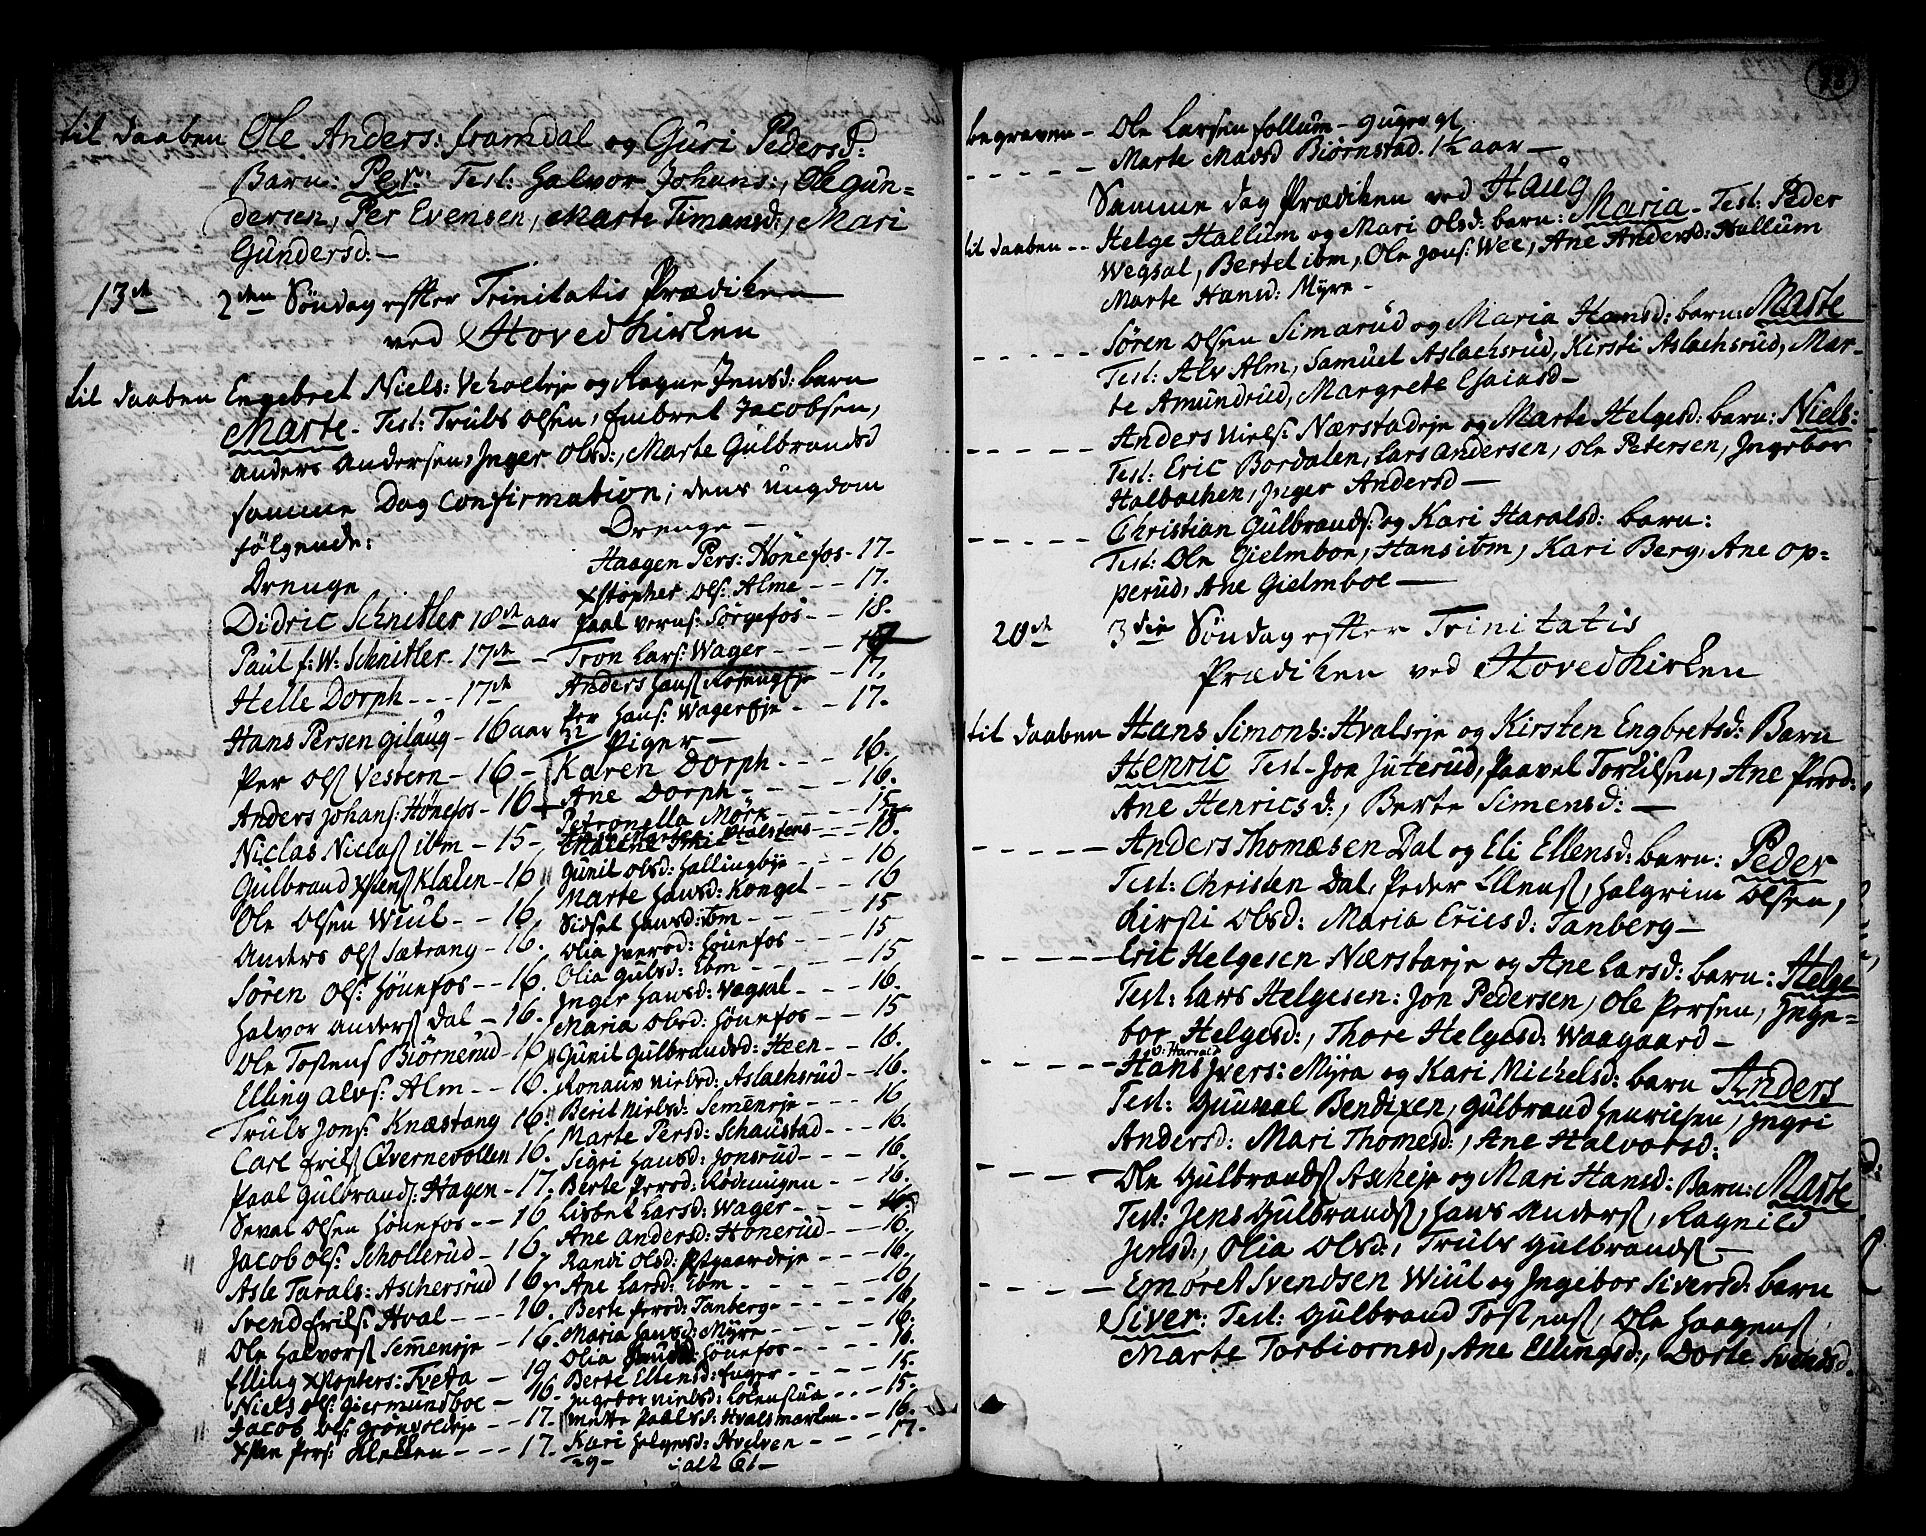 til daaben Ole Anders: framdal og Guri Pedersd:
Barn: Per: Test: Halvor Johans:, Ole Gun=
dersen, Per Evensen, Marte Timansd:, Mari
Gundersd:—
13de 2den Søndag effter Trinitatis Prædiken
ved Hovedkirken
til daaben Engebret Niels: Veholteje og Ragne Jensd: barn
Marte. Test: Truls Olsen, Embret Jacobsen,
Anders Andersen, Inger Olsd:, Marte Gulbrandsd
samme Dag Confirmation; dens ungdom
følgende:
Drenge
Didric Schnitler 18de aar
Paul f: W: Schnitler - 17de -
Helle Dorph - - - 17de
Hans Persen Gilaug - 16 aar
Per Ols Vestern - 16 -
Anders Johans: Hönefos - 16
Niclas Niclas ibm - 15 -
Gulbrand Xstens Klælen - 16
Ole Olsen Wiul - - 16,
Anders Ols Sætrang - 16.
Sören Ols: Hönefos - - 16.
Halvor Anders Dal - 16.
Ole Tostens Biörnerud - 16
Elling Alvs: Alm - - 16.
Truls Jons: Knæstang 16.
Carl Erils Qvernevollen 16.
Paal Gulbrands: Hagen - 17.
Seval Olsen Hönefos - - 16
Jacob Ols: Schollerud - 16,
Asle Tarals: Aschersrud 16
Svend Erils: Hval - - - 16.
Ole Halvors Semmensje - 16.
Elling Xstophers: Tveta - 19
Niels Ols: Giermundboe - 16.
Jacob Ols: Grönvoldeje - - 17.
Xsten Pers: Klekken - - - 17.
Drenge —
Haagen Pers: Hönefos - 17.
Xstopher Ols: Alme - - 17.
Paal Verns: Sörgefos - - 18.
Tron Lars: Wager - - - - 17
Anders Hans Rosengeje - 17.
Per Hans: Wagereje - - - 17.
32
Piger —
Karen Dorph - - - 16.
Ane Dorph - - - - 16.
Petronella Mörk - - - - 15
- - 18.
Gunil Olsd: Hallingbye - - - 16
Marte Hansd: Kongel - - - 16
Sidsel Hansd: ibm - - - - 15
Olia Iversd: Hönefos - - - 15
Olia Gulsd: Ibm - - - - - 15
Inger Hansd: Vagsal - - - - 16.
Maria Olsd: Hönefos - - - 15
Gunil Gulbrandsd: Heen - - 16.
Ronauv Nielsd: Aslachsrud - - 16.
Berit Nielsd: Semensje - - - - 16
Marte Persd: Schaustad - - - 16.
Sigri Hansd: Jonsrud - - - - 16.
Berte Persd: Rödningen - - - 16.
Lisbet Larsd: Wager - - - - 16.
Ane Andersd: Honerud - - - 16.
Randi Olsd: Pstgaardeje - - - 16.
Ane Larsd: Ibm - - - - - - 16
Berte Persd: Tanberg - - - - - 16.
Maria Hansd: Myre - - - - - 16.
Olia Hönefos - - - - 16.
Berte Ellensd: Enger - - - - - 15.
Ingebor Nielsd: - - - 15.
Mette Paalsd: Hvalsmarken - - 16.
Kari Helgesd: Hvelven - - - - 17.
29— i alt 61—
begraven — Ole Larsen follum —
- - - - - Marte Madsd Biørnstad. 1½ aar —
Samme dag Prædiken ved Haug
til daaben - - Helge Hallum og Mari Olsd: barn: Maria. Test: Peder
Wegsal, Bertel ibm, Ole Jons: Wee, Ane Andersd: Hallum
Marte Hansd: Myre -
- - - - - Søren Olsen Simarud og Maria Hansd: barn: Marte
Test: Alv Alm, Samuel Aslachsrud, Kirsti Aslachsrud, Mar-
te Amundrud, Margrete Esaiasd —
- - - - - Anders Niels: Nærstadeje og Marte Helgesd: barn: Niels:
Test: Eric Bordalen, Lars Andersen, Ole Petersen, Ingebor
Halbachen, Inger Andersd —
- - - - - Christian Gulbrands: og Kari Haralsd: barn:
Test: Ole Gielmboe, Hans ibm, Kari Berg, Ane Op=
perud, Ane Gielmboe —
20de 3die Søndag effter Trinitatis
Prædiken ved Hovedkirken
til daaben Hans Simons: Hvalseje og Kirsten Engbretsd: Barn
Henric Test - Jon Juterud, Paavel Torkilsen, Ane Persd:
Ane Henricsd:, Berte Simensd: —
- - - - - Anders Thomæsen Dal og Eli Ellensd: barn: Peder
Test: Christen Dal, Peder Ellens, Halgrim Olsen,
Kirsti Olsd: Maria Ericsd: Tanberg —
- - - - - Eric Helgesen Nærstaeje og Ane Larsd: barn: Helge
Test: Lars Helgesen: Jon Pedersen, Ole Persen, Inge=
bor Helgesd:, Thore Helgesd: Waagaard —
v: Harrald
- - - - - Hans Ivers: Myra og Kari Michelsd: barn Anders
Test: Gunval Bendixen, Gulbrand Henricsen, Ingri
Andersd: Mari Thomesd:, Ane Halvorsd:
- - - - Ole Gulbrands Askeje og Mari Hansd: Barn: Marte
Test: Jens Gulbrands, Hans Anders, Ragnild
Jensd:, Olia Olsd:, Truls Gulbrands —
- - - - Embret Svendsen Wiul og Ingebor Siversd: barn
Siver: Test: Gulbrand Tostens, Ole Haagens
Marte Torbiornsd, Ane Ellingsd:, Dorte Svendsd.